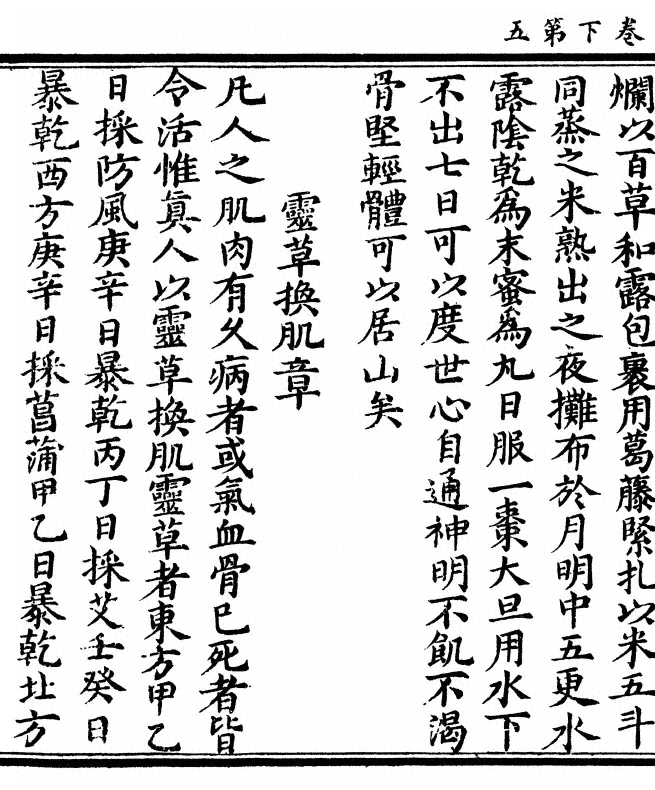 卷下第五
爛以百草和露包裹用葛藤緊扎以米五斗
同蒸之米熟出之夜攤布於月明中五更水
露陰乾爲末蜜爲丸日服一棗大旦用水下
不出七日可以度世心自通神明不飢不渴
骨堅輕體可以居山矣
靈草換肌章
凡人之肌肉有久病者或氣血骨巳死者皆
令活惟眞人以靈草換肌靈草者東方甲乙
日採防風庚辛日暴乾丙丁日採艾壬癸日
暴乾西方庚辛日採菖蒲甲乙日暴乾北方